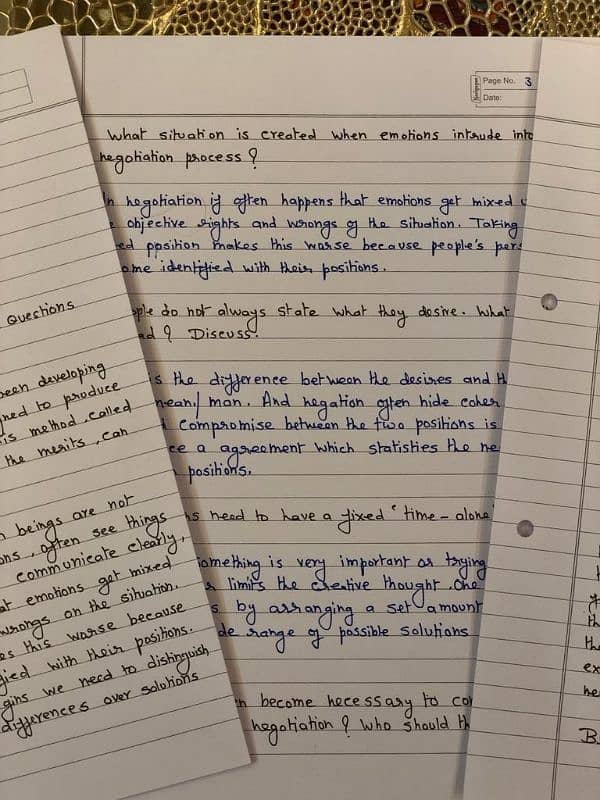 Page No. 3
Date:
What situation is created when emotions intrude into
negotiation process ?
negotiation it often happens that emotions get mixed
objective rights and wrongs of the situation. Taking
position makes this worse because people's
identified with their positions.
do not always state what they desire. What
? Discuss.
is the difference between the desires and
mean/man. And negation often hide
compromise between the two positions is
a agreement which statisties the
positions.
need to have a fixed "time-alone
something is very important or trying
limits the creative thought. One
by arranging a set amount
range of possible solutions
become necessary to
negotiation ? Who should
Questions
been developing
to produce
method called
the merits, can
beings are not
often see things
communicate clearly,
emotions get mixed
wrongs on the situation.
this worse because
with their positions.
we need to distinguish
differences over solutions